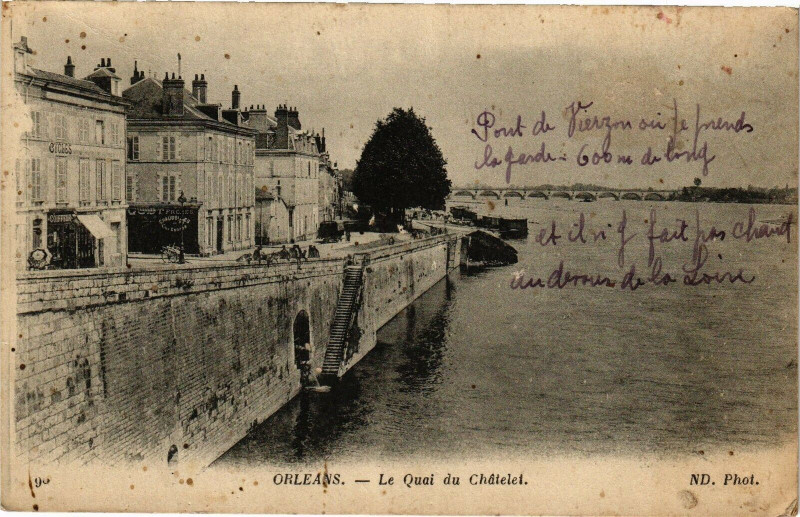 CYCLES
COIFFEUR
Pont de Vierzon où je prends
la garde - 600 m de long
et il n'y fait pas chaud
au dessus de la Loire
98 ORLÉANS. — Le Quai du Châtelet. ND. Phot.